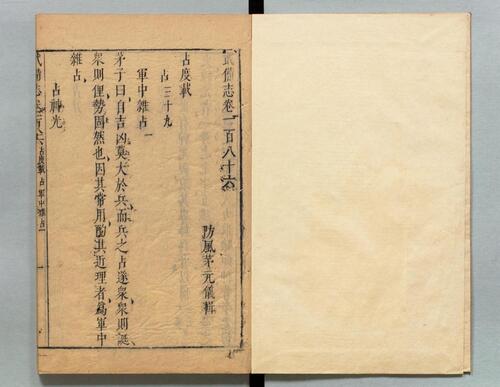 武備志卷一百八十六
防風茅元儀輯
占度載
占三十九
軍中雜占一
茅子曰自吉凶莫大於兵而兵之占遂衆衆則誕
衆則俚勢固然也因其常用酌其近理者爲軍中
雜占
占神光
武備志卷百八六 占度載 占 軍中雜占一 一